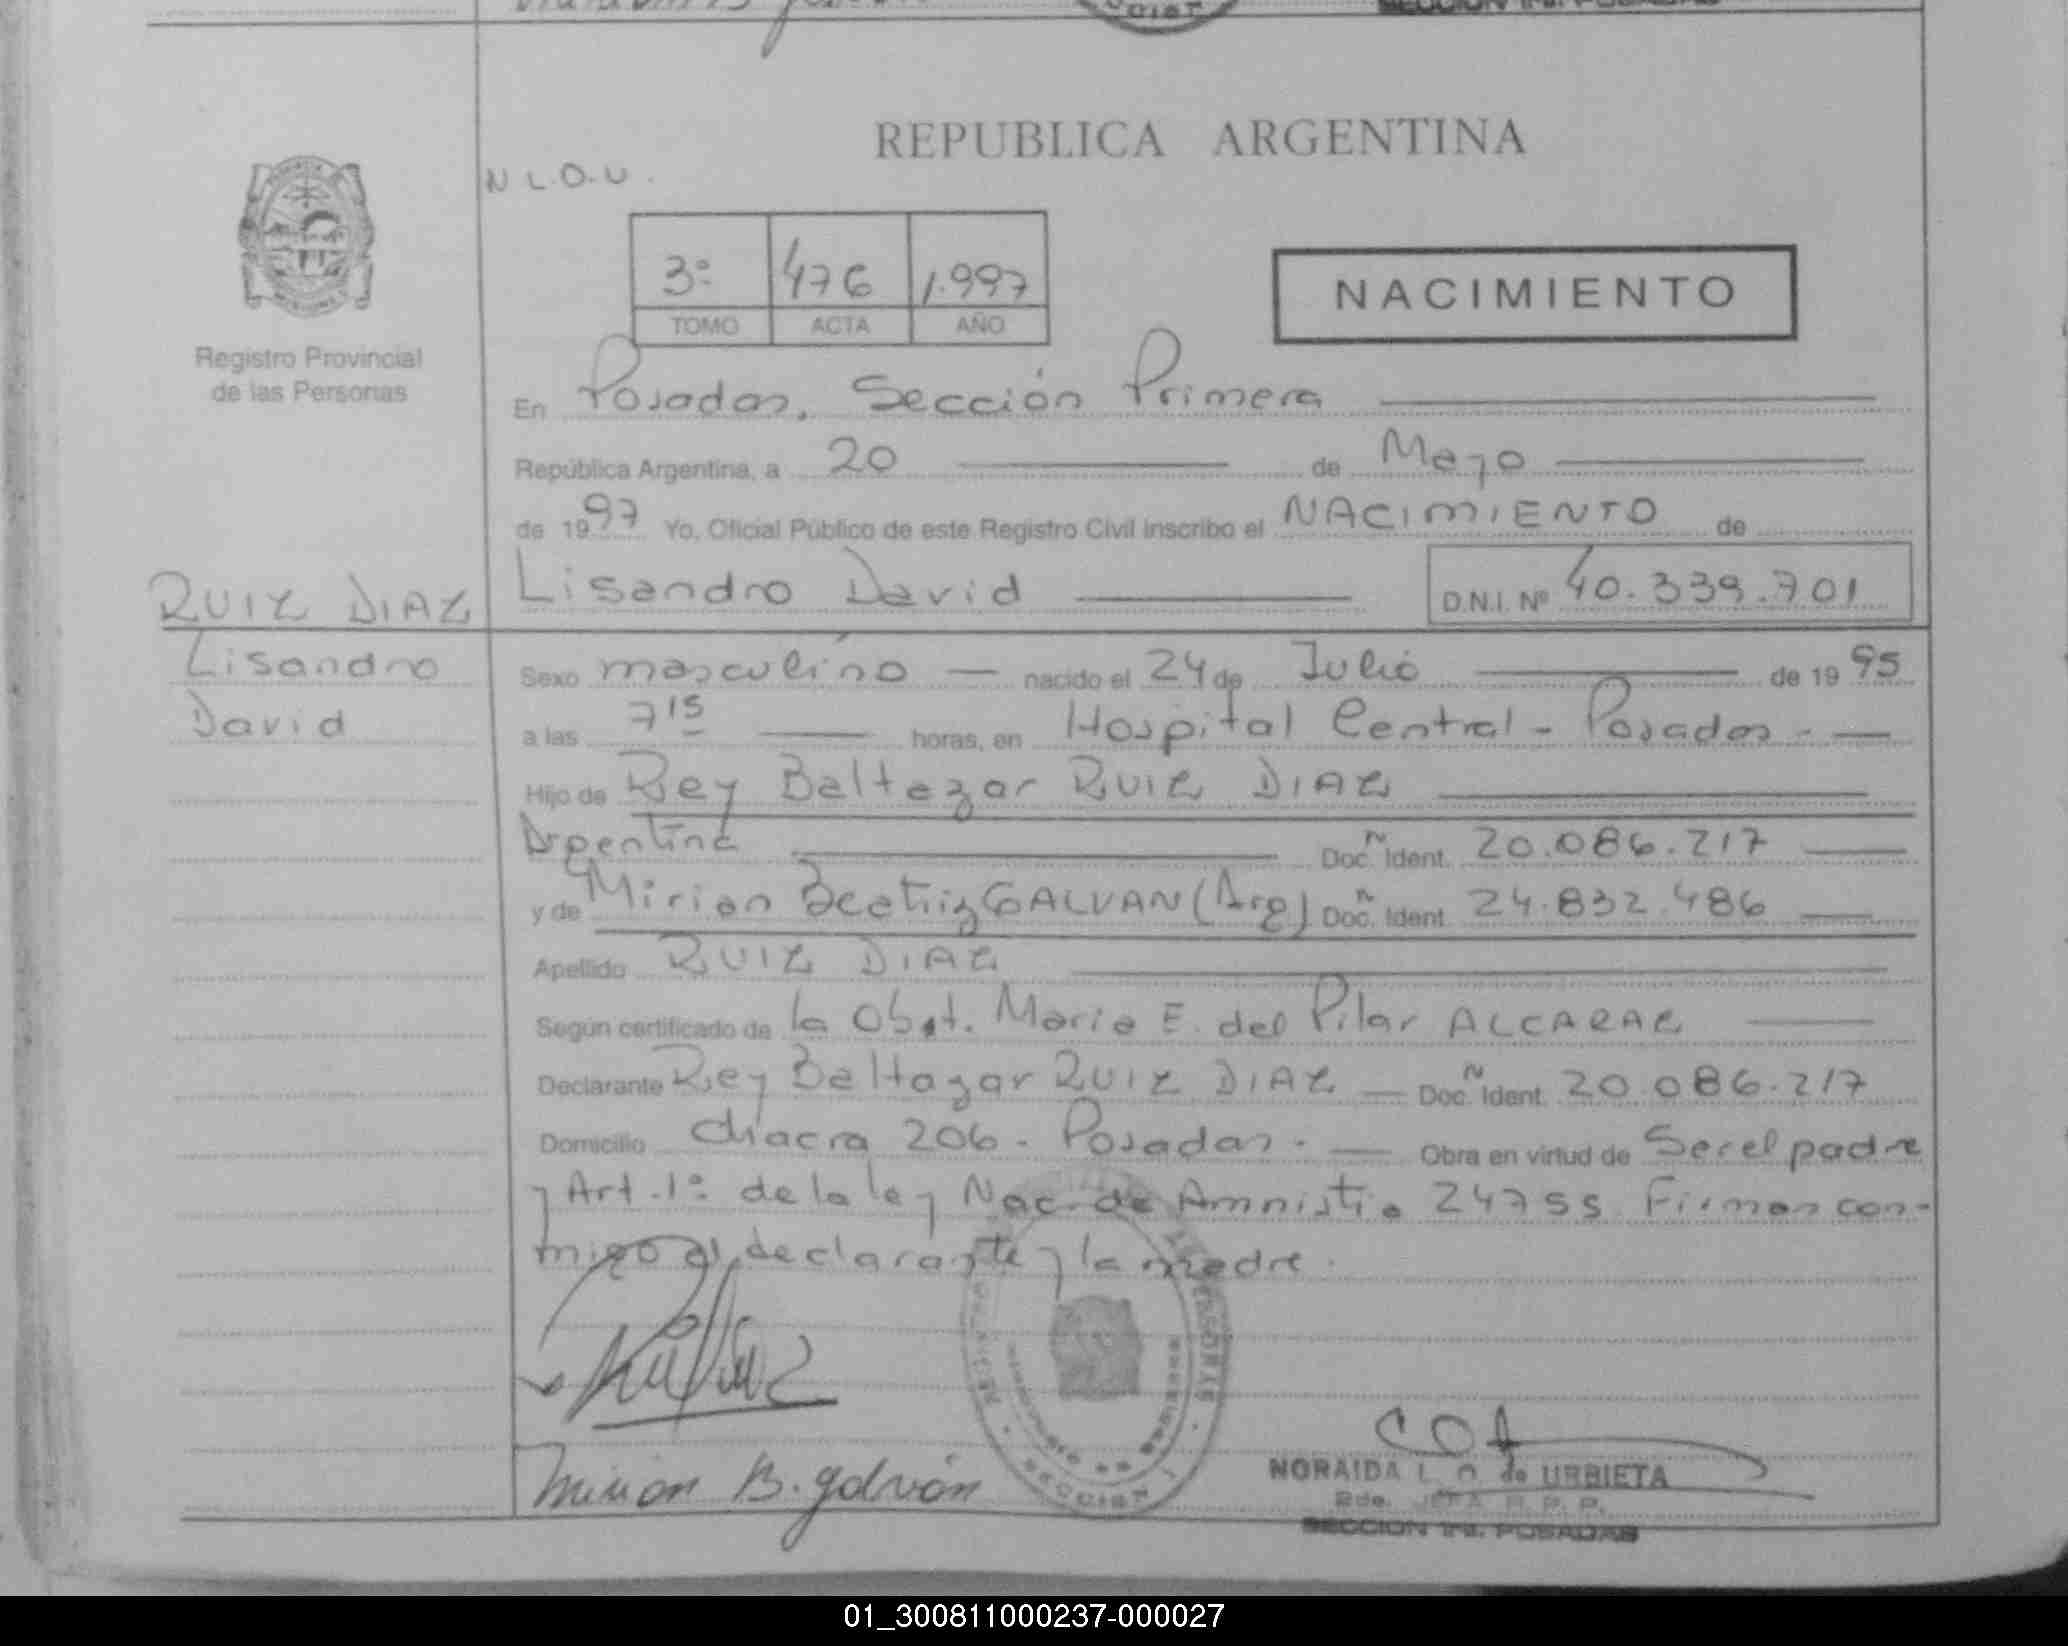 REPUBLICA ARGENTINA
N L.O.U.
3º 476 1.997
TOMO ACTA AÑO
NACIMIENTO
Registro Provincial
de las Personas
En Posadas, Sección Primera
República Argentina, a 20 de Mayo
de 1997 Yo, Oficial Público de este Registro Civil inscribo el NACIMIENTO de
Lisandro David D.N.I. Nº 40.339.701
RUIZ DIAZ
Lisandro
David
Sexo masculino nacido el 24 de Julio de 1995
a las 7 15 horas, en Hospital Central - Posadas. -
Hijo de Rey Baltazar RUIZ DIAZ
Argentina Doc. Ident. 20.086.217
y de Mirian Beatriz GALVAN (Arg) Doc. Ident. 24.832.486
Apellido RUIZ DIAZ
Según certificado de la Obst. Maria E. del Pilar ALCARAZ
Declarante Rey Baltazar RUIZ DIAZ Doc. Ident. 20.086.217
Domicilio Chacra 206 - Posadas. - Obra en virtud de Ser el padre
y Art. 1º de la ley Nac. de Amnistia 24755 Firman con-
migo el declarante y la madre.
Mirian B. Galván
NORAIDA L. O. de URBIETA
Rde. JEFA R. P. P.
SECCION 1ra. POSADAS
SECCION 1
01_300811000237-000027